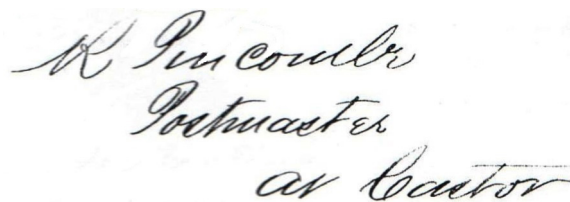 K Pincombe
Postmaster
at Castor